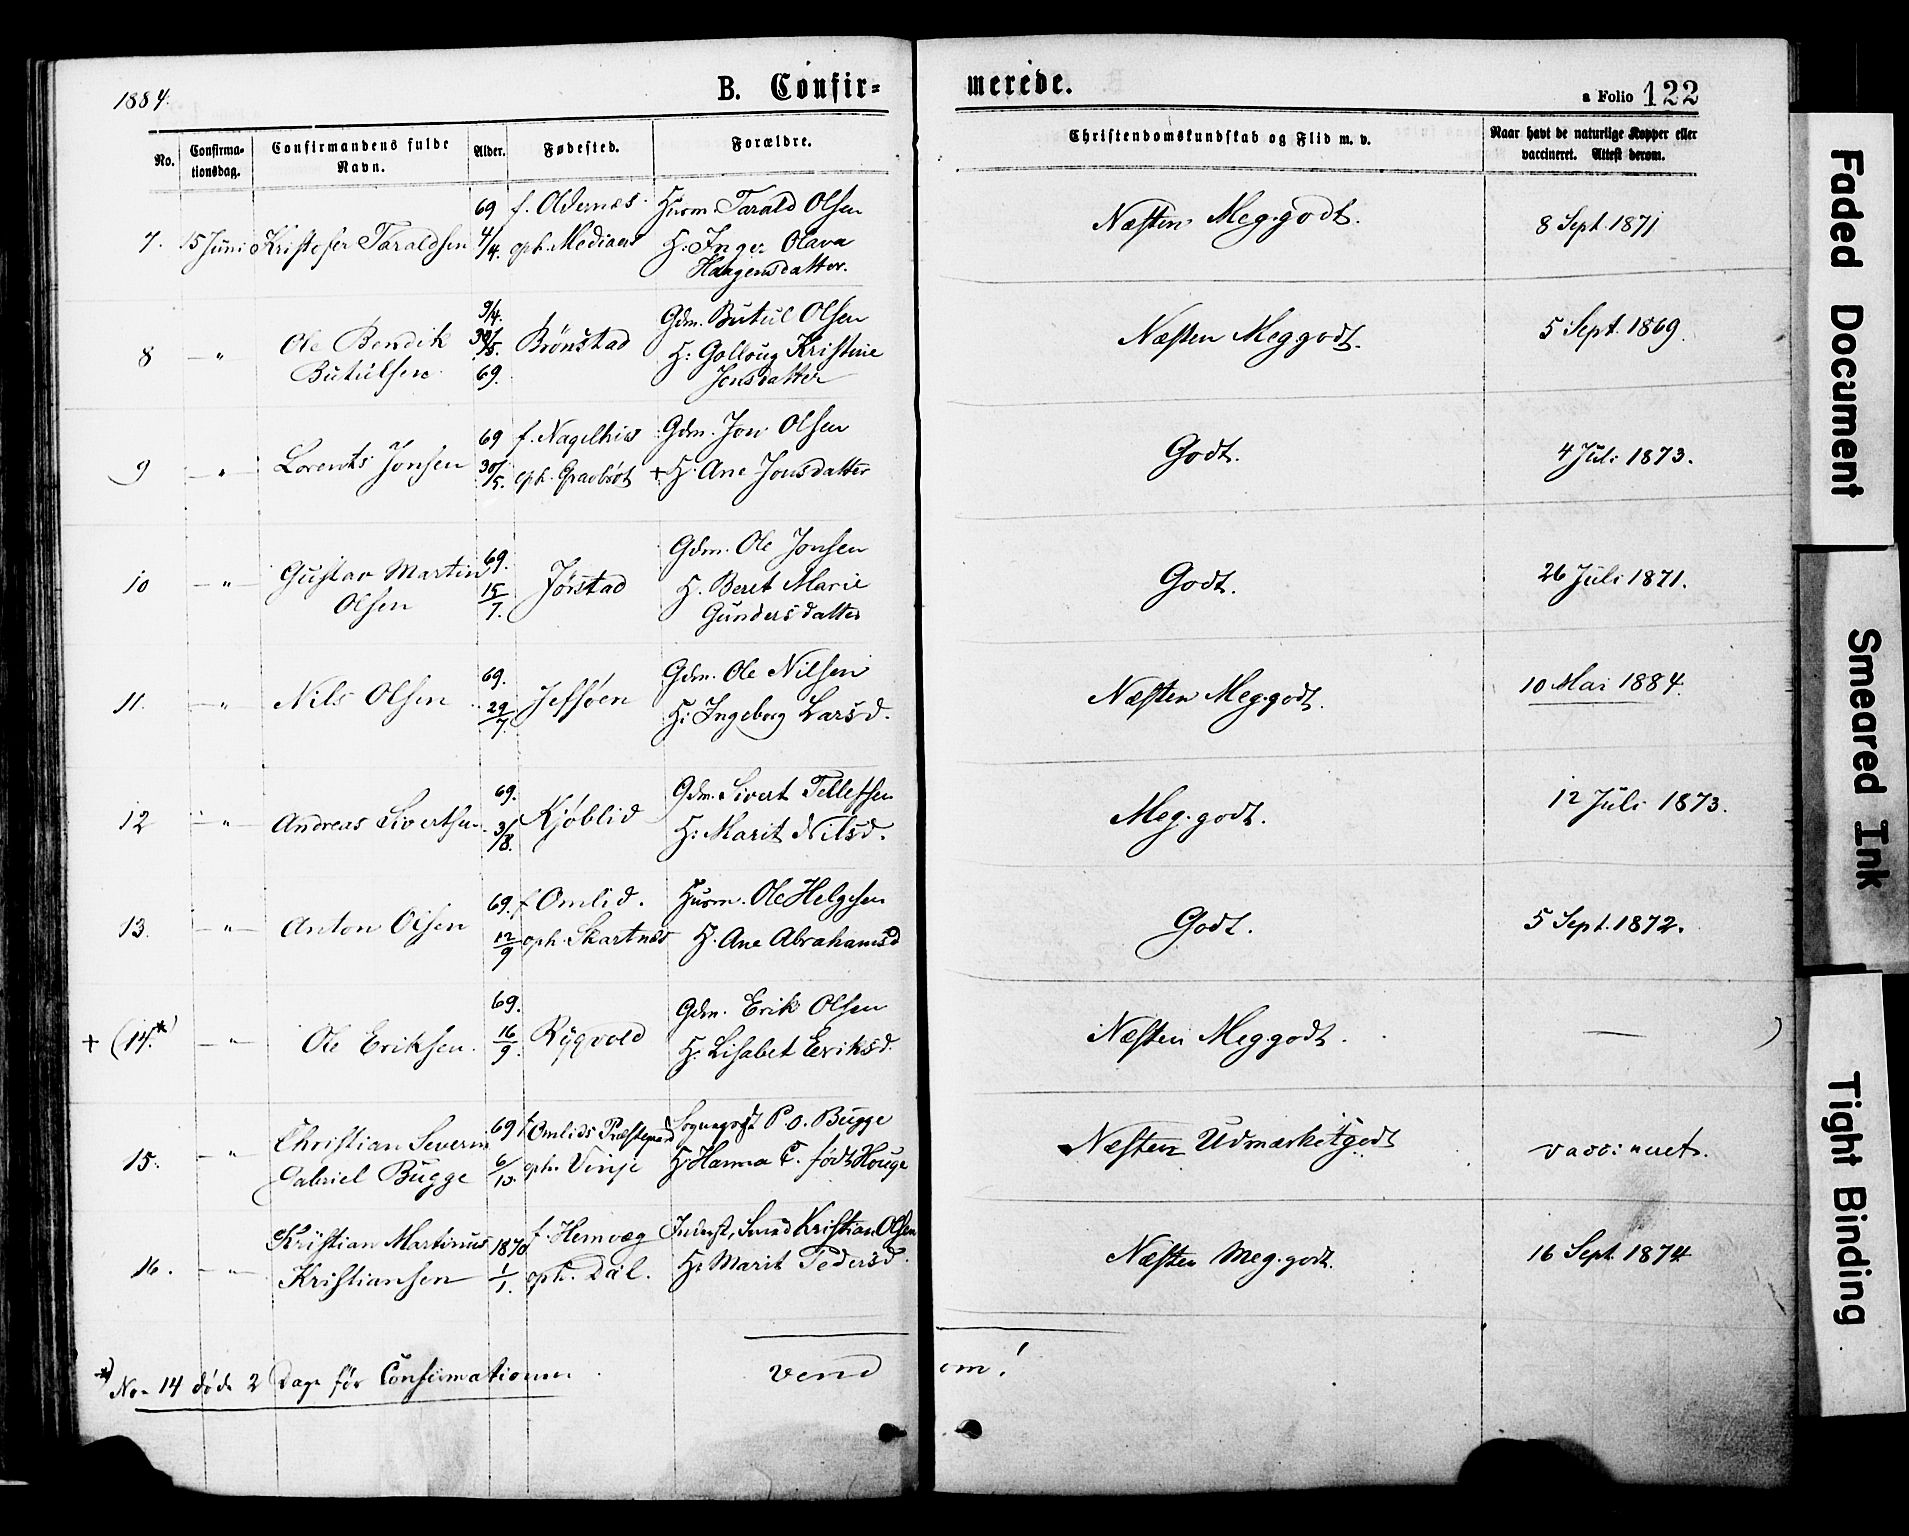 1884.
B. Confir-
merede.
a Folio 122
No.
Confirma-
tionsdag.
Confirmandens fulde
Navn.
Alder.
Fødested.
Forældre.
Christendomskundskab og Flid m. v.
Naar havt de naturlige Kopper eller
vaccineret. Attest derom.
69 f. Oldernæs. Husm. Tarald Olsen
7. 15 Juni Kristofer Taraldsen 4/4. oph. Mediaas H: Inger Olava
Haagensdatter.
Næsten Meg. godt. 8 Sept. 1871
9/4. Gdm. Butul Olsen
8 — " Ole Bendik 30/5. Brønstad H: Golloug Kristine
Butulsen. 69. Jonsdatter
Næsten Meg godt. 5 Sept. 1869.
69 f. Nagelhus Gdm. Jon Olsen
9 — " Lorents Jonsen 30/5. oph. Gravbrøt + H. Ane Jonsdatter
Godt. 4 Juli 1873.
69. Gdm. Ole Jonsen
10 — " — Gustav Martin 15/7. Jørstad H. Beret Marie
Olsen Gundersdatter
Godt. 26 Juli 1871.
69. Gdm. Ole Nilsen
11. — " Nils Olsen 29/7. Jessøen H: Ingeborg Larsd.
Næsten Meg. godt. 10 Mai 1884.
69. Gdm. Sivert Tellefsen
12 — " — Andreas Sivertsen 3/8. Kjøblid H: Marit Nilsd.
Meg. godt. 12 Juli 1873.
69. f Omlid. Husm. Ole Helgesen
13. — " — Anton Olsen 12/9 oph. Skartnes H. Ane Abrahamsd
Godt. 5 Sept. 1872.
69. Gdm. Erik Olsen
+ (14.*) — " — Ole Eriksen. 16/9. Rygvold H: Lisabet Eriksd.
Næsten Meg godt. — )
Christian Severin 69 f Omlids Præstegaard Sogneprest P. O. Bugge
15. — " Gabriel Bugge 6/10. oph. Vinje H: Hanna C. født Houge
Næsten Udmærket godt vaccineret.
Kristian Martinus 1870 f. Hemvæg Inderst, Smed Kristian Olsen
16. — " — Kristiansen 1/1. oph. Dal. H: Marit Pedersd.
Næsten Meg. godt. 16 Sept. 1874
*) No. 14 døde 2 Dage før Confirmationen.
vend om!
Faded Document
Smeared Ink
Tight Binding